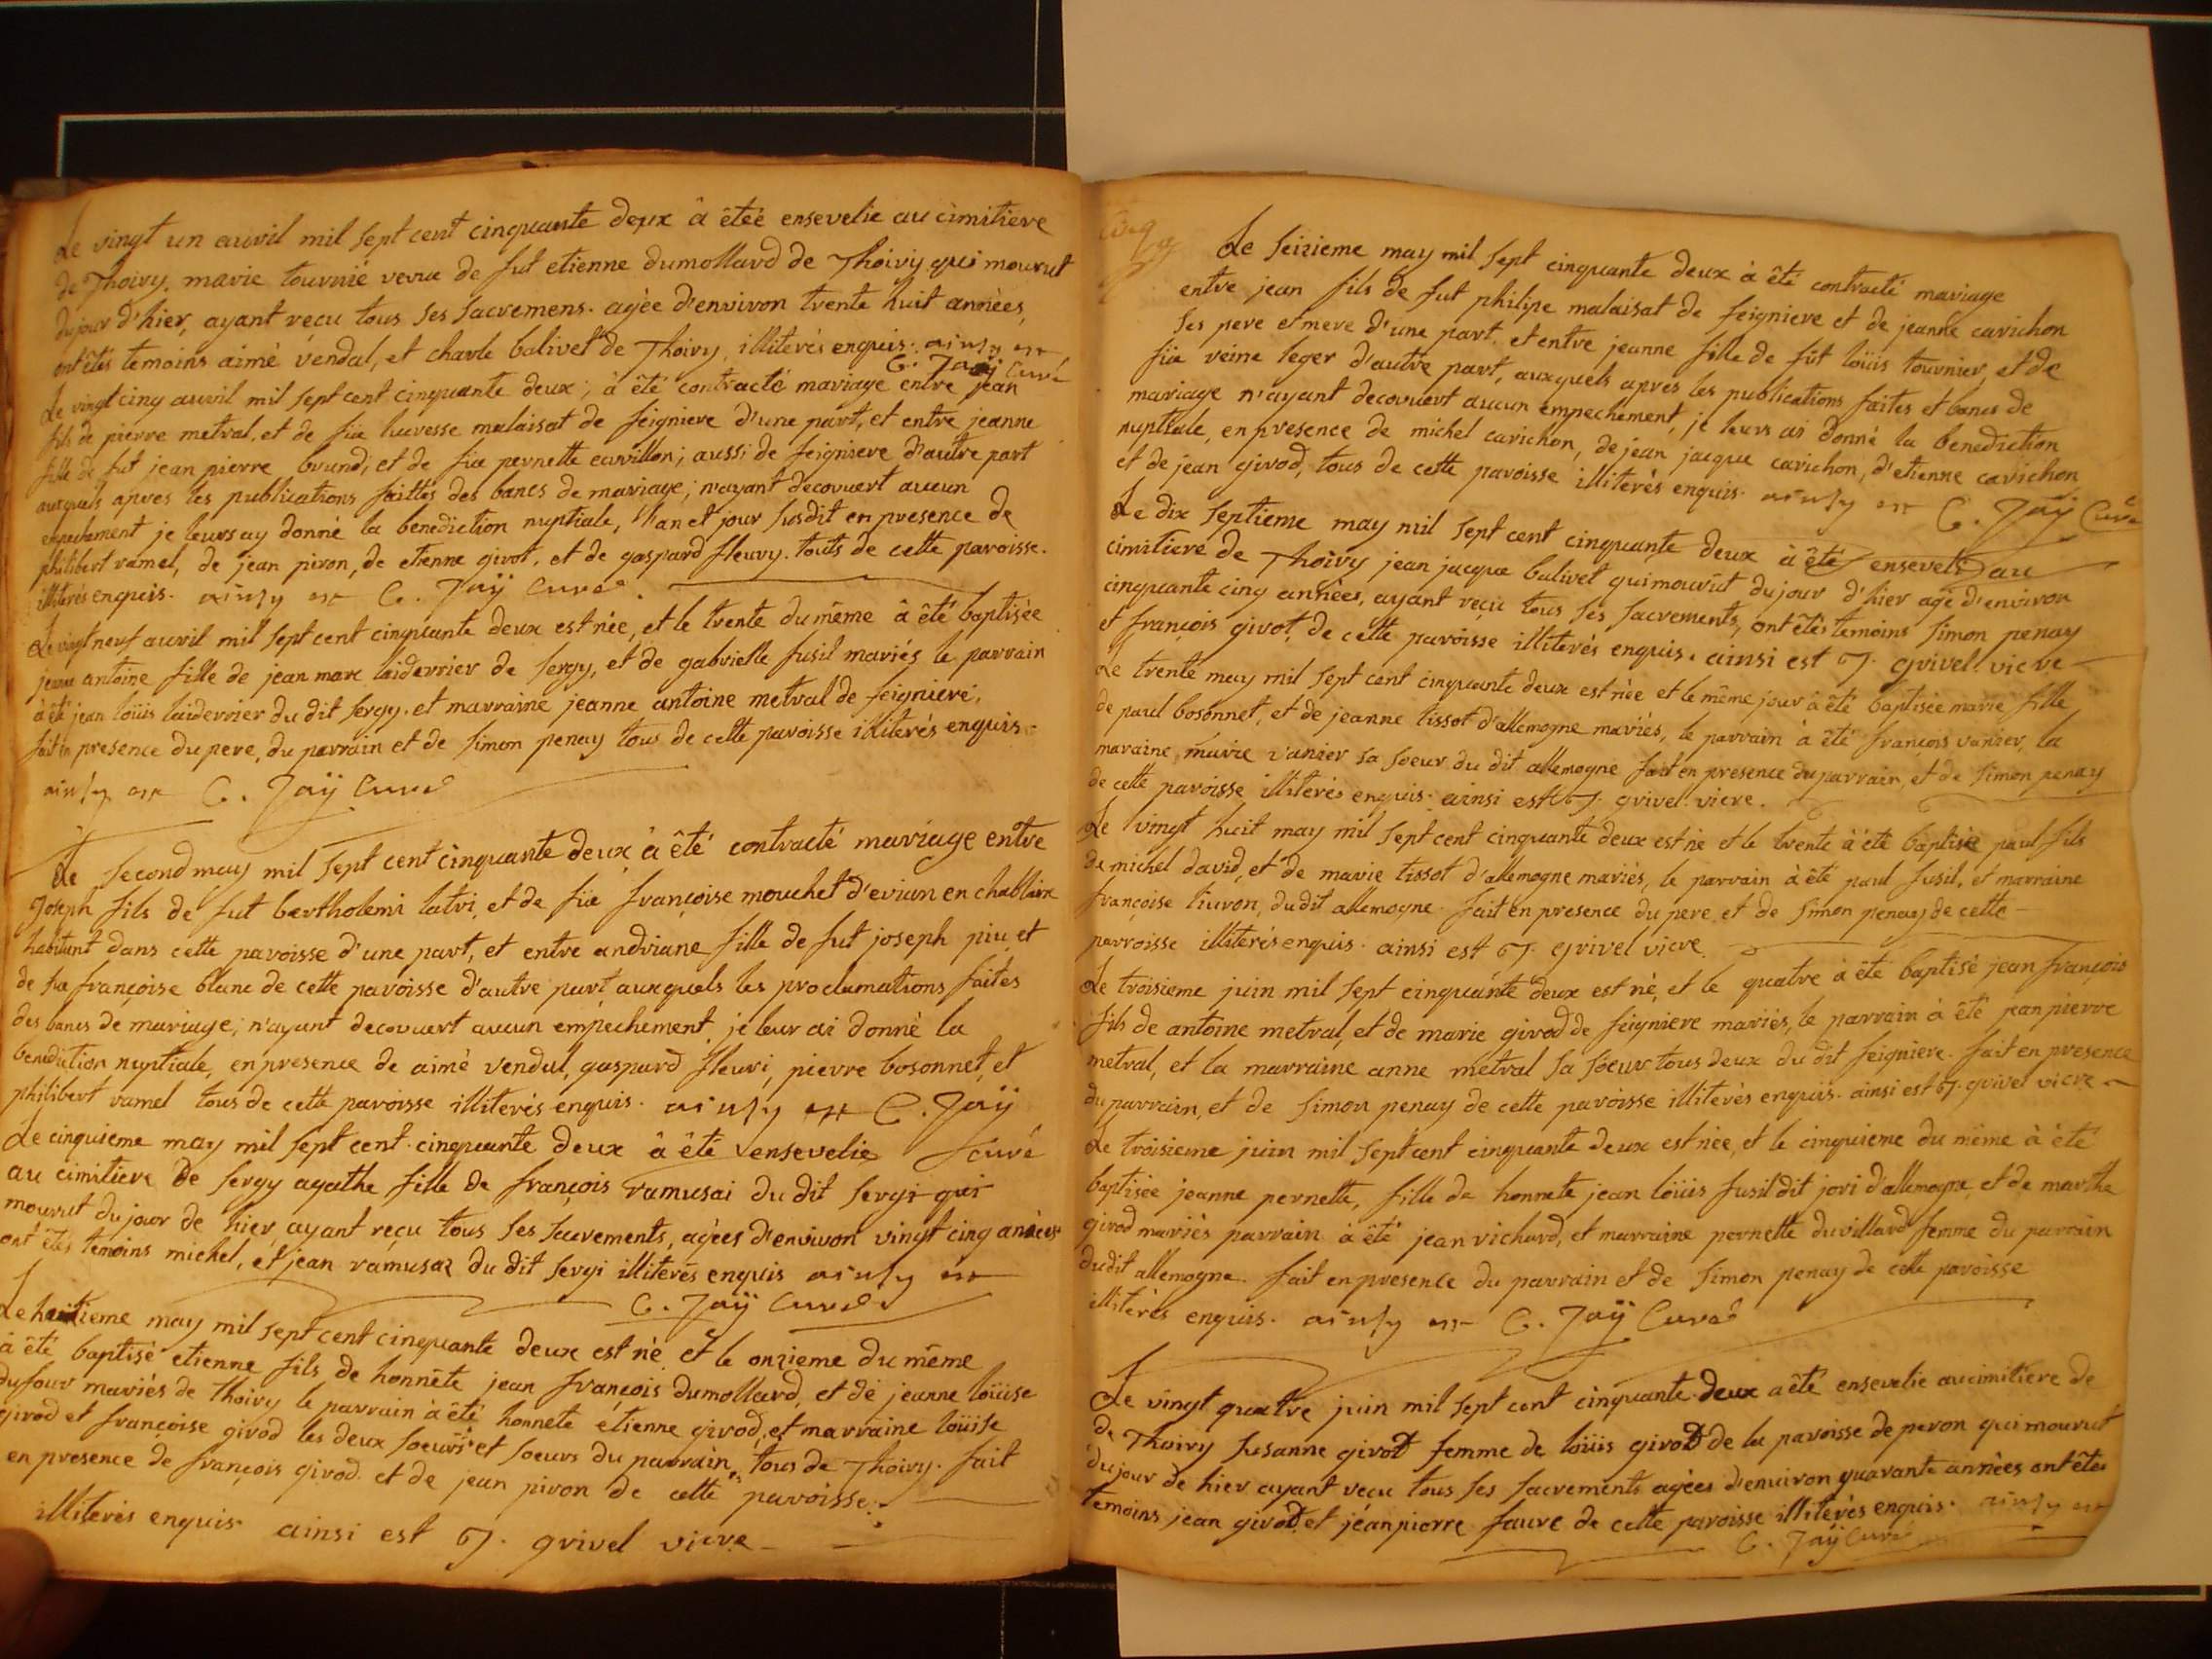 Le vingt un auvril mil sept cent cinquante deux â êtée ensevelie au cimitiere
de Thoiry marie tournié veuve de fut etienne dumollard de Thoiry qui mourut
du jour d'hier, ayant recu tous ses sacremens. agèe d'environ trente huit annèes,
ont étés temoins aimé vendal, et charle balivet de Thoiry, illiterés enquis. ainsy est
C. Jaÿ Curé
Le vingt cinq auvril mil sept cent cinquante deux; à été contracté mariage entre jean
fils de pierre metral, et de füe lucresse malaisat de feigniere d'une part, et entre jeanne
fille de fut jean pierre brund, et de füe pernette curvillon; aussi de feigniere d'autre part
auxquels apres les publications faittes des bancs de mariage; n'ayant decouvert aucun
empechement je leurs ay donné la benediction nuptiale, l'an et jour susdit en presence de
philibert ramel, de jean piron, de etienne girot, et de gaspard fleury. touts de cette paroisse.
illiterés enquis. ainsy est C. Jaÿ Curé.
Le vingt neuf auvril mil sept cent cinquante deux est née, et le trente du même â été baptisée
jeanne antoine fille de jean marc laiderrier de sergy, et de gabrielle fusil mariés le parrain
à été jean loüis laiderrier du dit sergy. et marraine jeanne antoine metral de feigniere,
fait en presence du pere, du parrain et de simon penay tous de cette paroisse illiterés enquis.
ainsy est C. Jaÿ Curé
Le second may mil sept cent cinquante deux à été contracté mariage entre
Joseph fils de fut bartholemi latri, et de füe françoise mouchet d'evian en chablaix
habitant dans cette paroisse d'une part, et entre andriane fille de fut joseph piu, et
de füe françoise blanc de cette paroisse d'autre part auxquels les proclamations faites
des bancs de mariage; n'ayant decouvert aucun empechement je leur ai donné la
benediction nuptiale, en presence de aimé vendal, gaspard fleuri, pierre bosonnet, et
philibert ramel tous de cette paroisse illiterés enquis. ainsy est C. Jaÿ
curé
Le cinquieme may mil sept cent cinquante deux â été ensevelie
au cimitiere de sergy agathe fille de françois ramusai du dit sergi qui
mourut du jour de hier, ayant reçu tous ses sacrements, agèes d'environ vingt cinq années
ont étés temoins michel, et jean ramusaz du dit sergi illiterés enquis ainsy est
C. Jaÿ Curé
Le huitieme may mil sept cent cinquante deux est né et le onzieme du même
à été baptisé etienne fils de honnête jean françois dumollard, et de jeanne loüise
dufour mariés de Thoiry le parrain à été honnete étienne girod, et marraine loüise
girod et françoise girod les deux soeurs et soeurs du parrain, tous de Thoiry. fait
en presence de françois girod et de jean piron de cette paroisse.
illiterés enquis ainsi est J. grivel vicre
Le seizieme may mil sept cinquante deux à été contracté mariage
entre jean fils de fut philipe malaisat de feigniere et de jeanne carichon
ses pere et mere d'une part, et entre jeanne fille de fût loüis tournier, et de
füe reine leger d'autre part, auxquels apres les publications faites et bancs de
mariage n'ayant decouvert aucun empechement, je leurs ai donné la benediction
nuptiale, en presence de michel carichon, de jean jacque carichon, d'etienne carichon
et de jean girod, tous de cette paroisse illiterés enquis. ainsy est C. Jaÿ Curé
Le dix septieme may mil sept cent cinquante deux à été enseveli au
cimitiere de Thoiry jean jacque balivet qui mourut du jour d'hier agé d'environ
cinquante cinq années, ayant reçu tous ses sacrements, ont êtés temoins simon penay
et françois girot, de cette paroisse illiterés enquis. ainsi est J. grivel vicre
Le trente may mil sept cent cinquante deux est née et le même jour à été baptisée marie fille
de paul bosonnet, et de jeanne tissot d'allemogne mariés, le parrain à été françois vanier, la
maraine marie vanier sa soeur du dit allemogne fait en presence du parrain, et de simon penay
de cette paroisse illiterés enquis. ainsi est J. grivel vicre.
Le vingt huit may mil sept cent cinquante deux est né et le trente à été baptisé paul fils
de michel david, et de marie tissot d'allemogne mariés, le parrain à été paul fusil, et marraine
françoise liuron, du dit allemogne. fait en presence du pere, et de simon penay de cette
parroisse illiterés enquis. ainsi est J. grivel vicre
Le troisieme juin mil sept cinquante deux est né, et le quatre à été baptisé jean françois
fils de antoine metral, et de marie girod de feigniere mariés, le parrain à été jean pierre
metral, et la marraine anne metral sa soeur tous deux du dit feigniere. fait en presence
du parrain, et de simon penay de cette paroisse illiterés enquis. ainsi est J. grivel vicre
Le troisieme juin mil sept cent cinquante deux est née, et le cinquieme du même à été
baptisée jeanne pernette, fille de honnete jean loüis fusil dit jori d'allemogne, et de marthe
girod mariés parrain à été jean richard, et marraine pernette duvillard femme du parrain
du dit allemogne. fait en presence du parrain et de simon penay de cette paroisse
illiterés enquis. ainsy est C. Jaÿ Curé
Le vingt quatre juin mil sept cent cinquante deux a été ensevelie au cimitiere de
de Thoiry susanne girod femme de loüis girod de la paroisse de peron qui mourut
du jour de hier ayant recu tous ses sacrements agées d'environ quarante années ont étes
temoins jean girod, et jéan pierre favre de cette paroisse illiterés enquis. ainsy est
C. Jaÿ Curé